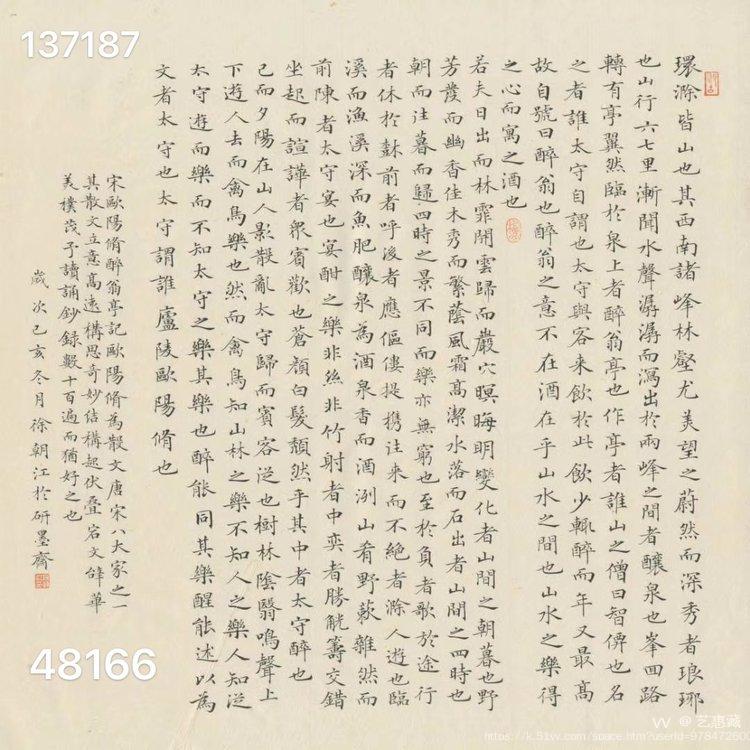 137187
環滁皆山也其西南諸峰林壑尤美望之蔚然而深秀者琅琊
也山行六七里漸聞水聲潺潺而瀉出於兩峰之間者釀泉也峯回路
轉有亭翼然臨於泉上者醉翁亭也作亭者誰山之僧曰智僊也名
之者誰太守自謂也太守與客来飲於此飲少輒醉而年又最高
故自號曰醉翁也醉翁之意不在酒在乎山水之間也山水之樂得
之心而寓之酒也
若夫日出而林霏開雲歸而巖穴暝晦明變化者山間之朝暮也野
芳發而幽香佳木秀而繁蔭風霜高潔水落而石出者山間之四時也
朝而往暮而歸四時之景不同而樂亦無窮也至於負者歌於途行
者休於𣗳前者呼後者應傴僂提携往来而不絕者滁人遊也臨
溪而漁溪深而魚肥釀泉為酒泉香而酒洌山肴野蔌雜然而
前陳者太守宴也宴酣之樂非絲非竹射者中奕者勝觥籌交錯
坐起而諠譁者衆賓歡也蒼顏白髮頹然乎其中者太守醉也
已而夕陽在山人影散亂太守歸而賓客從也樹林陰翳鳴聲上
下遊人去而禽鳥樂也然而禽鳥知山林之樂不知人之樂人知從
太守遊而樂而不知太守之樂其樂也醉能同其樂醒能述以為
文者太守也太守謂誰廬陵歐陽脩也
宋歐陽脩醉翁亭記歐陽脩為散文唐宋八大家之一
其散文立意高遠構思奇妙結構起伏叠宕文辭華
美樸茂予讀誦鈔錄數十百遍而猶好之也
歲次己亥冬月徐朝江於研墨齋
48166
VV @ 艺惠藏
https://k.51vv.com/space.htm?userId=978472600